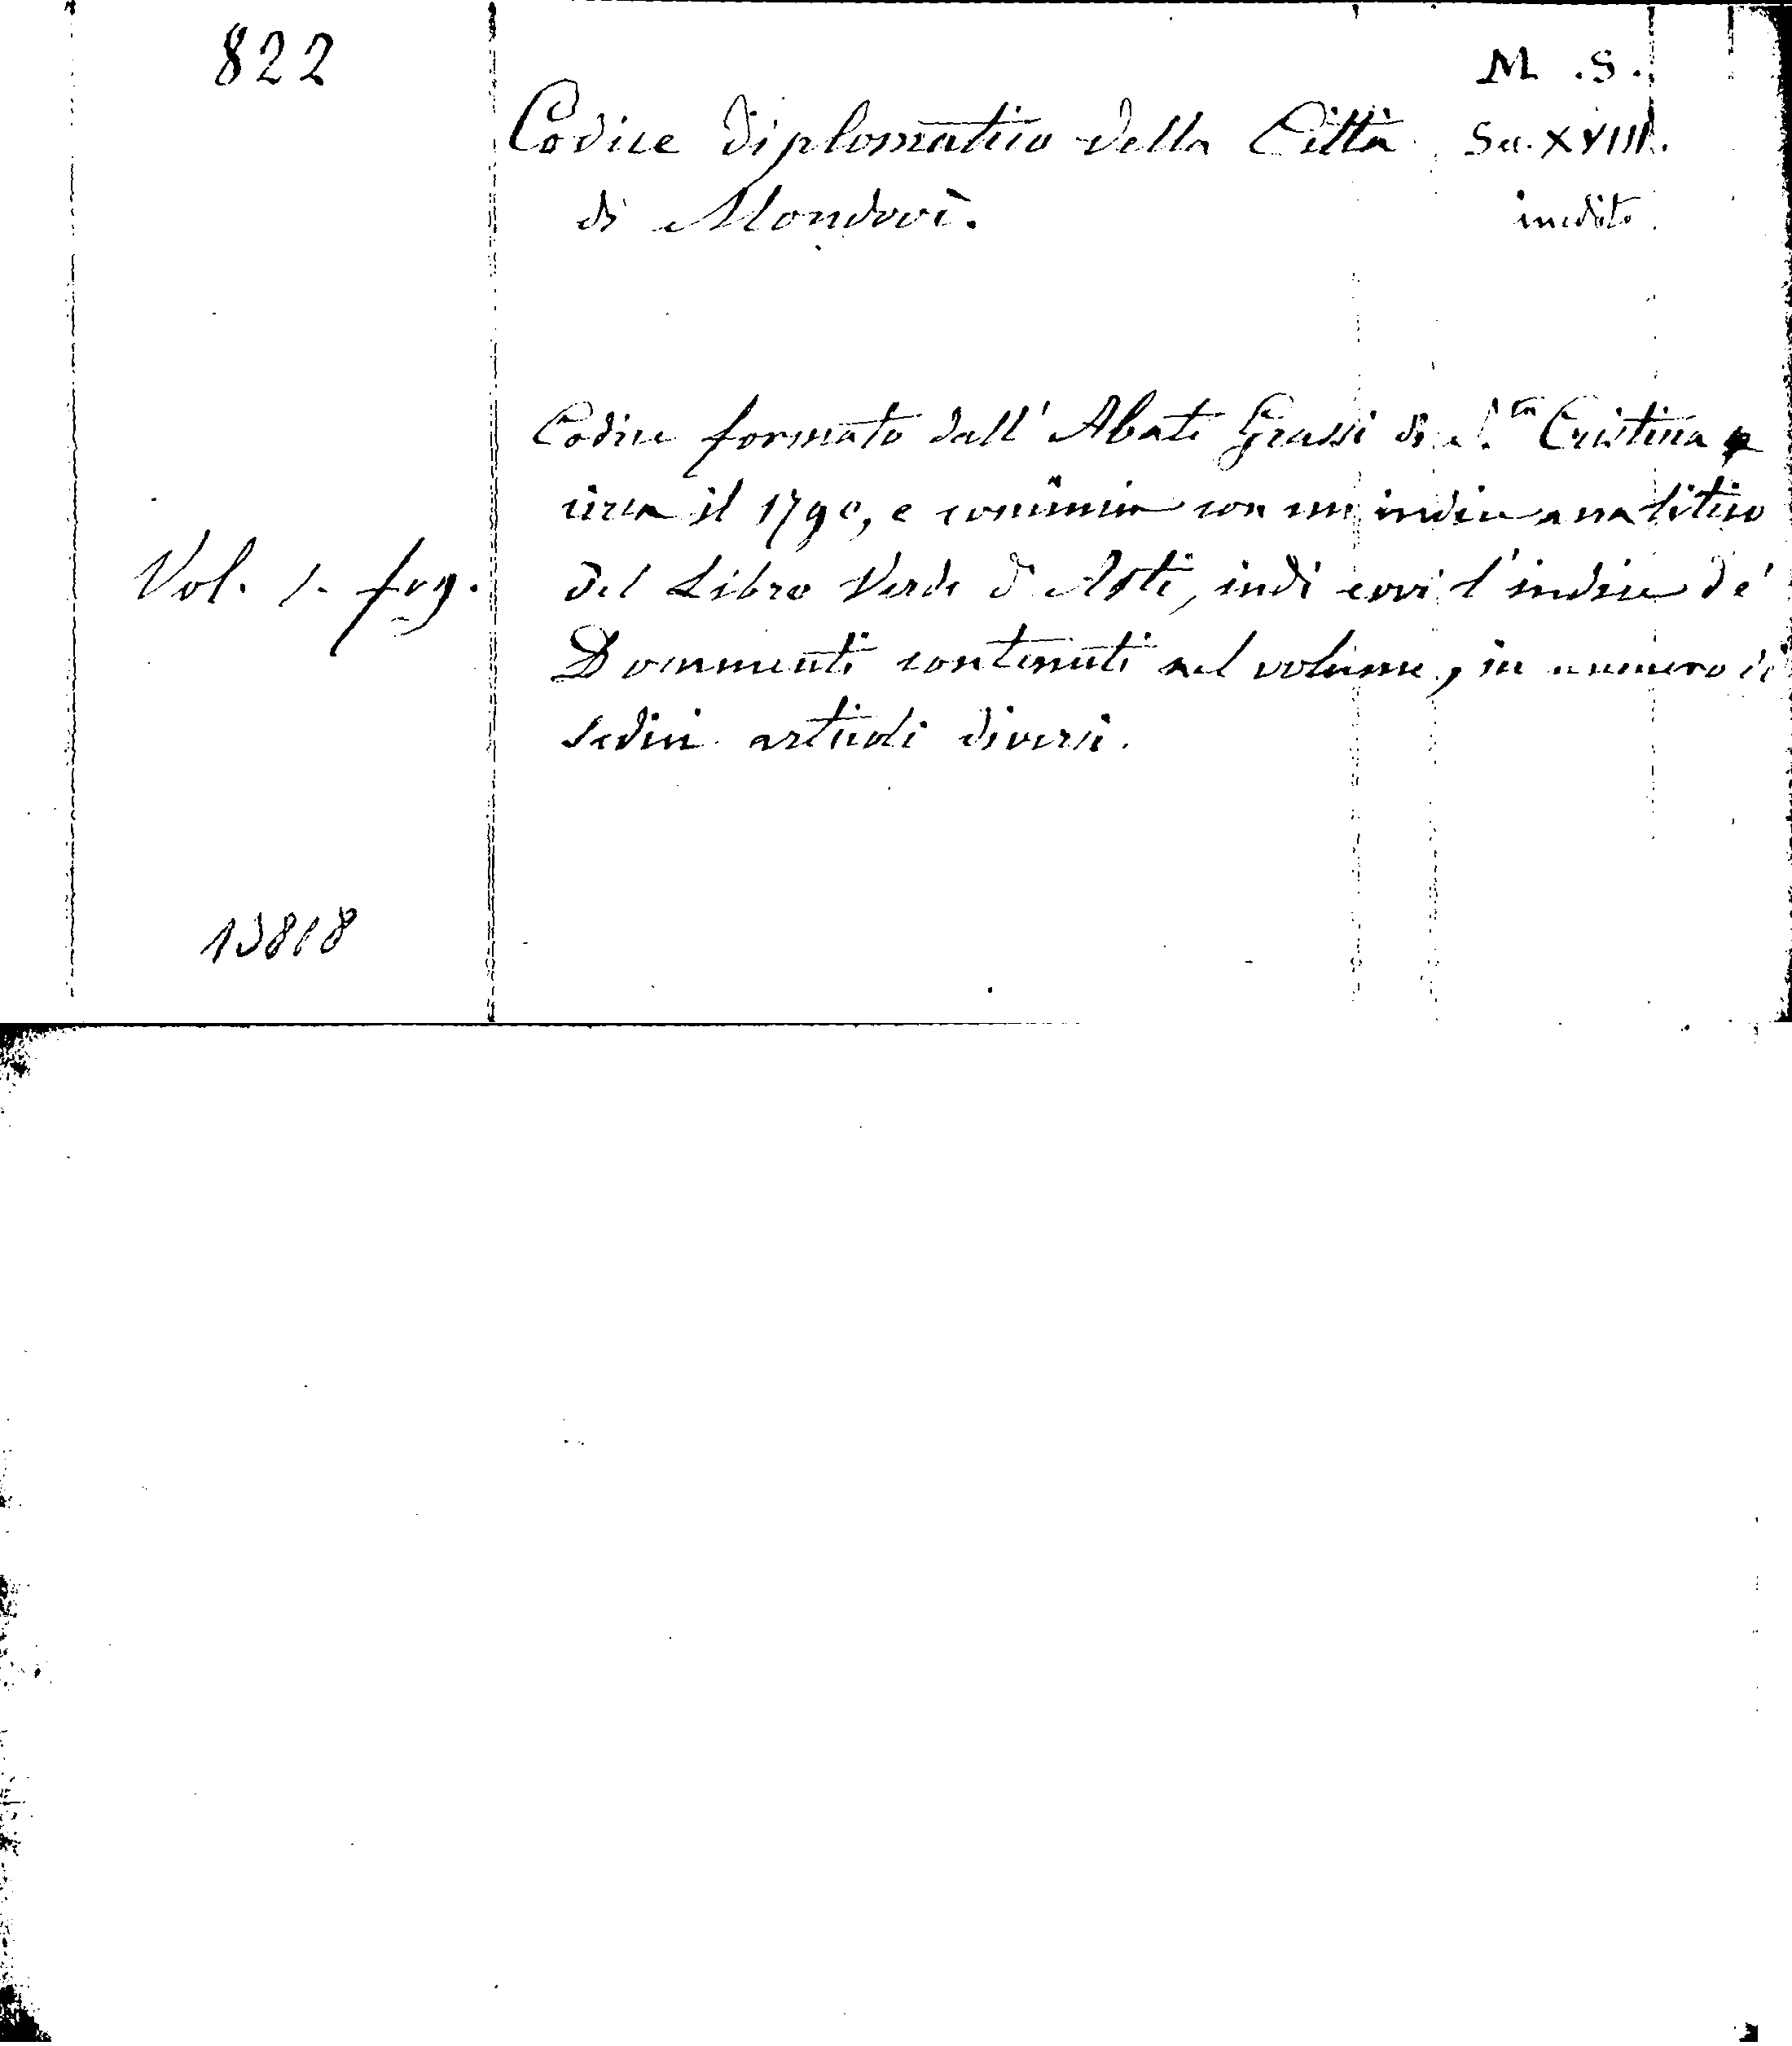 822
M. S.
Codice diplomatico della Città
Sec. XVIII.
di Mondovì.
inedito
Codice formato dall' Abate Grassi di S.ta Cristina
circa il 1790, e comincia con un indice analitico
Vol. 1. fog.
del Libro Verde d'Asti, indi evvi l'indice de'
Documenti contenuti nel volume, in numero di
sedici articoli diversi.
13818